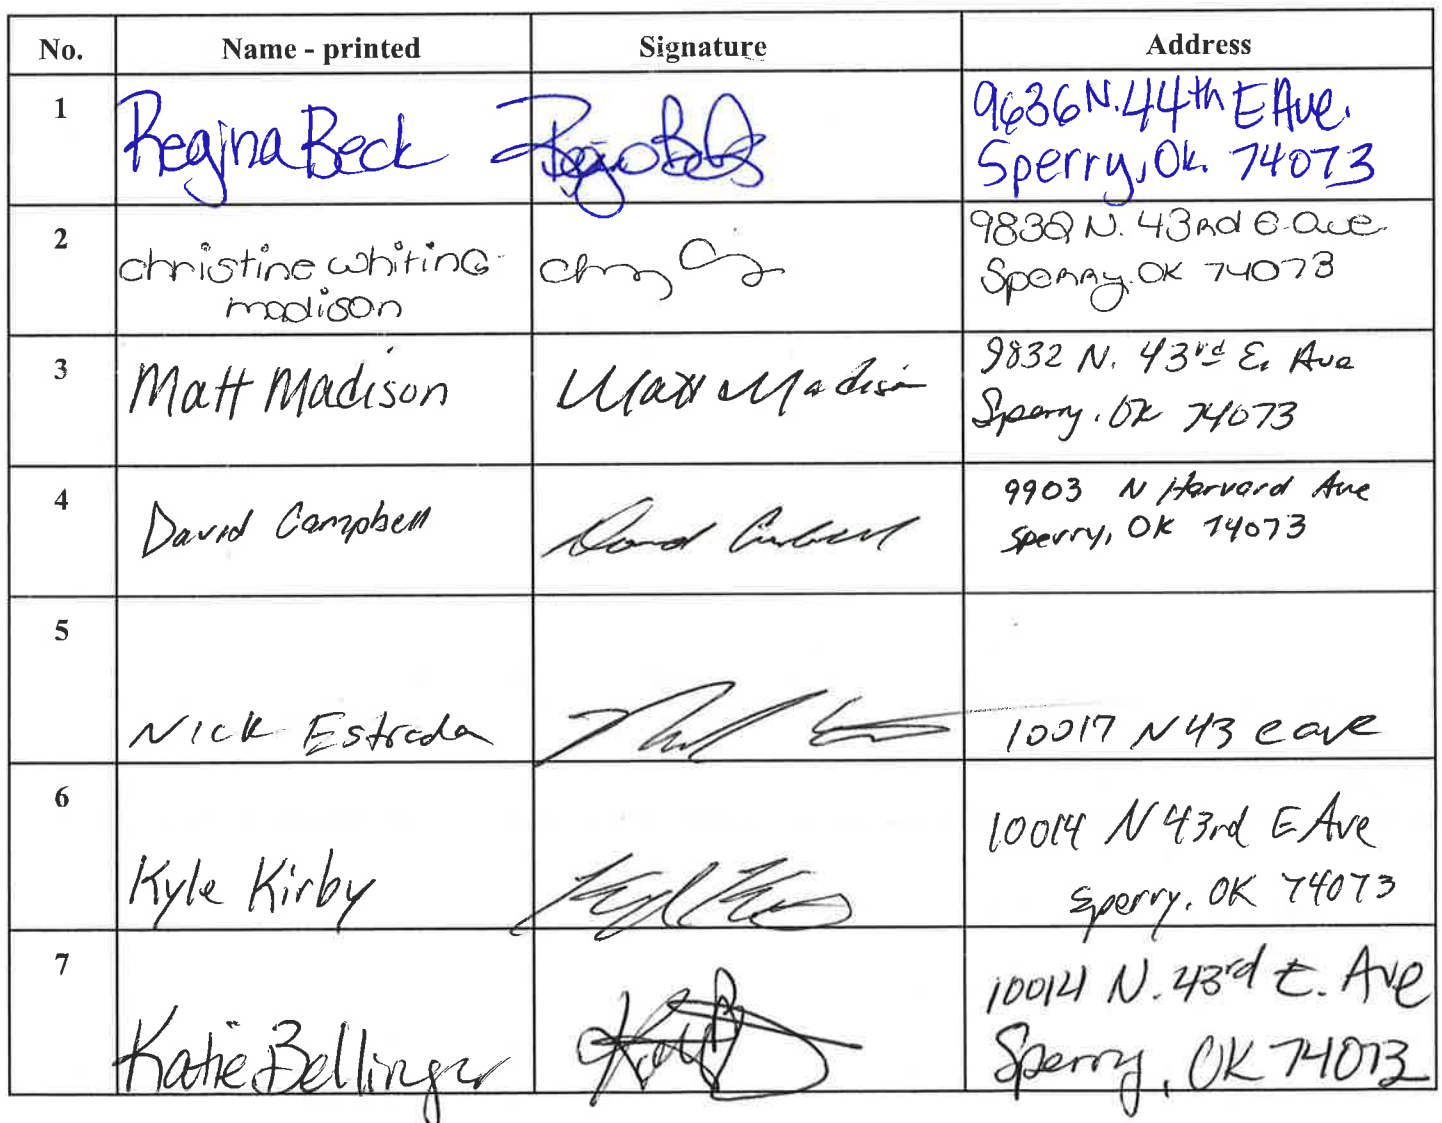 No. Name - printed Signature Address
1 Regina Beck Regina Beck 9636 N. 44th E Ave.
Sperry, Ok. 74073
2 christine whiting-
madison
9832 N. 43rd E. Ave
Sperry, OK 74073
3 Matt Madison Matt Madison 9832 N. 43rd E. Ave
Sperry, OK 74073
4 David Campbell David Campbell 9903 N Harvard Ave
Sperry, OK 74073
5 Nick Estrada 10017 N 43 e ave
6 Kyle Kirby 10014 N 43rd E Ave
Sperry, OK 74073
7 Katie Bellinger 10014 N. 43rd E. Ave
Sperry, OK 74073